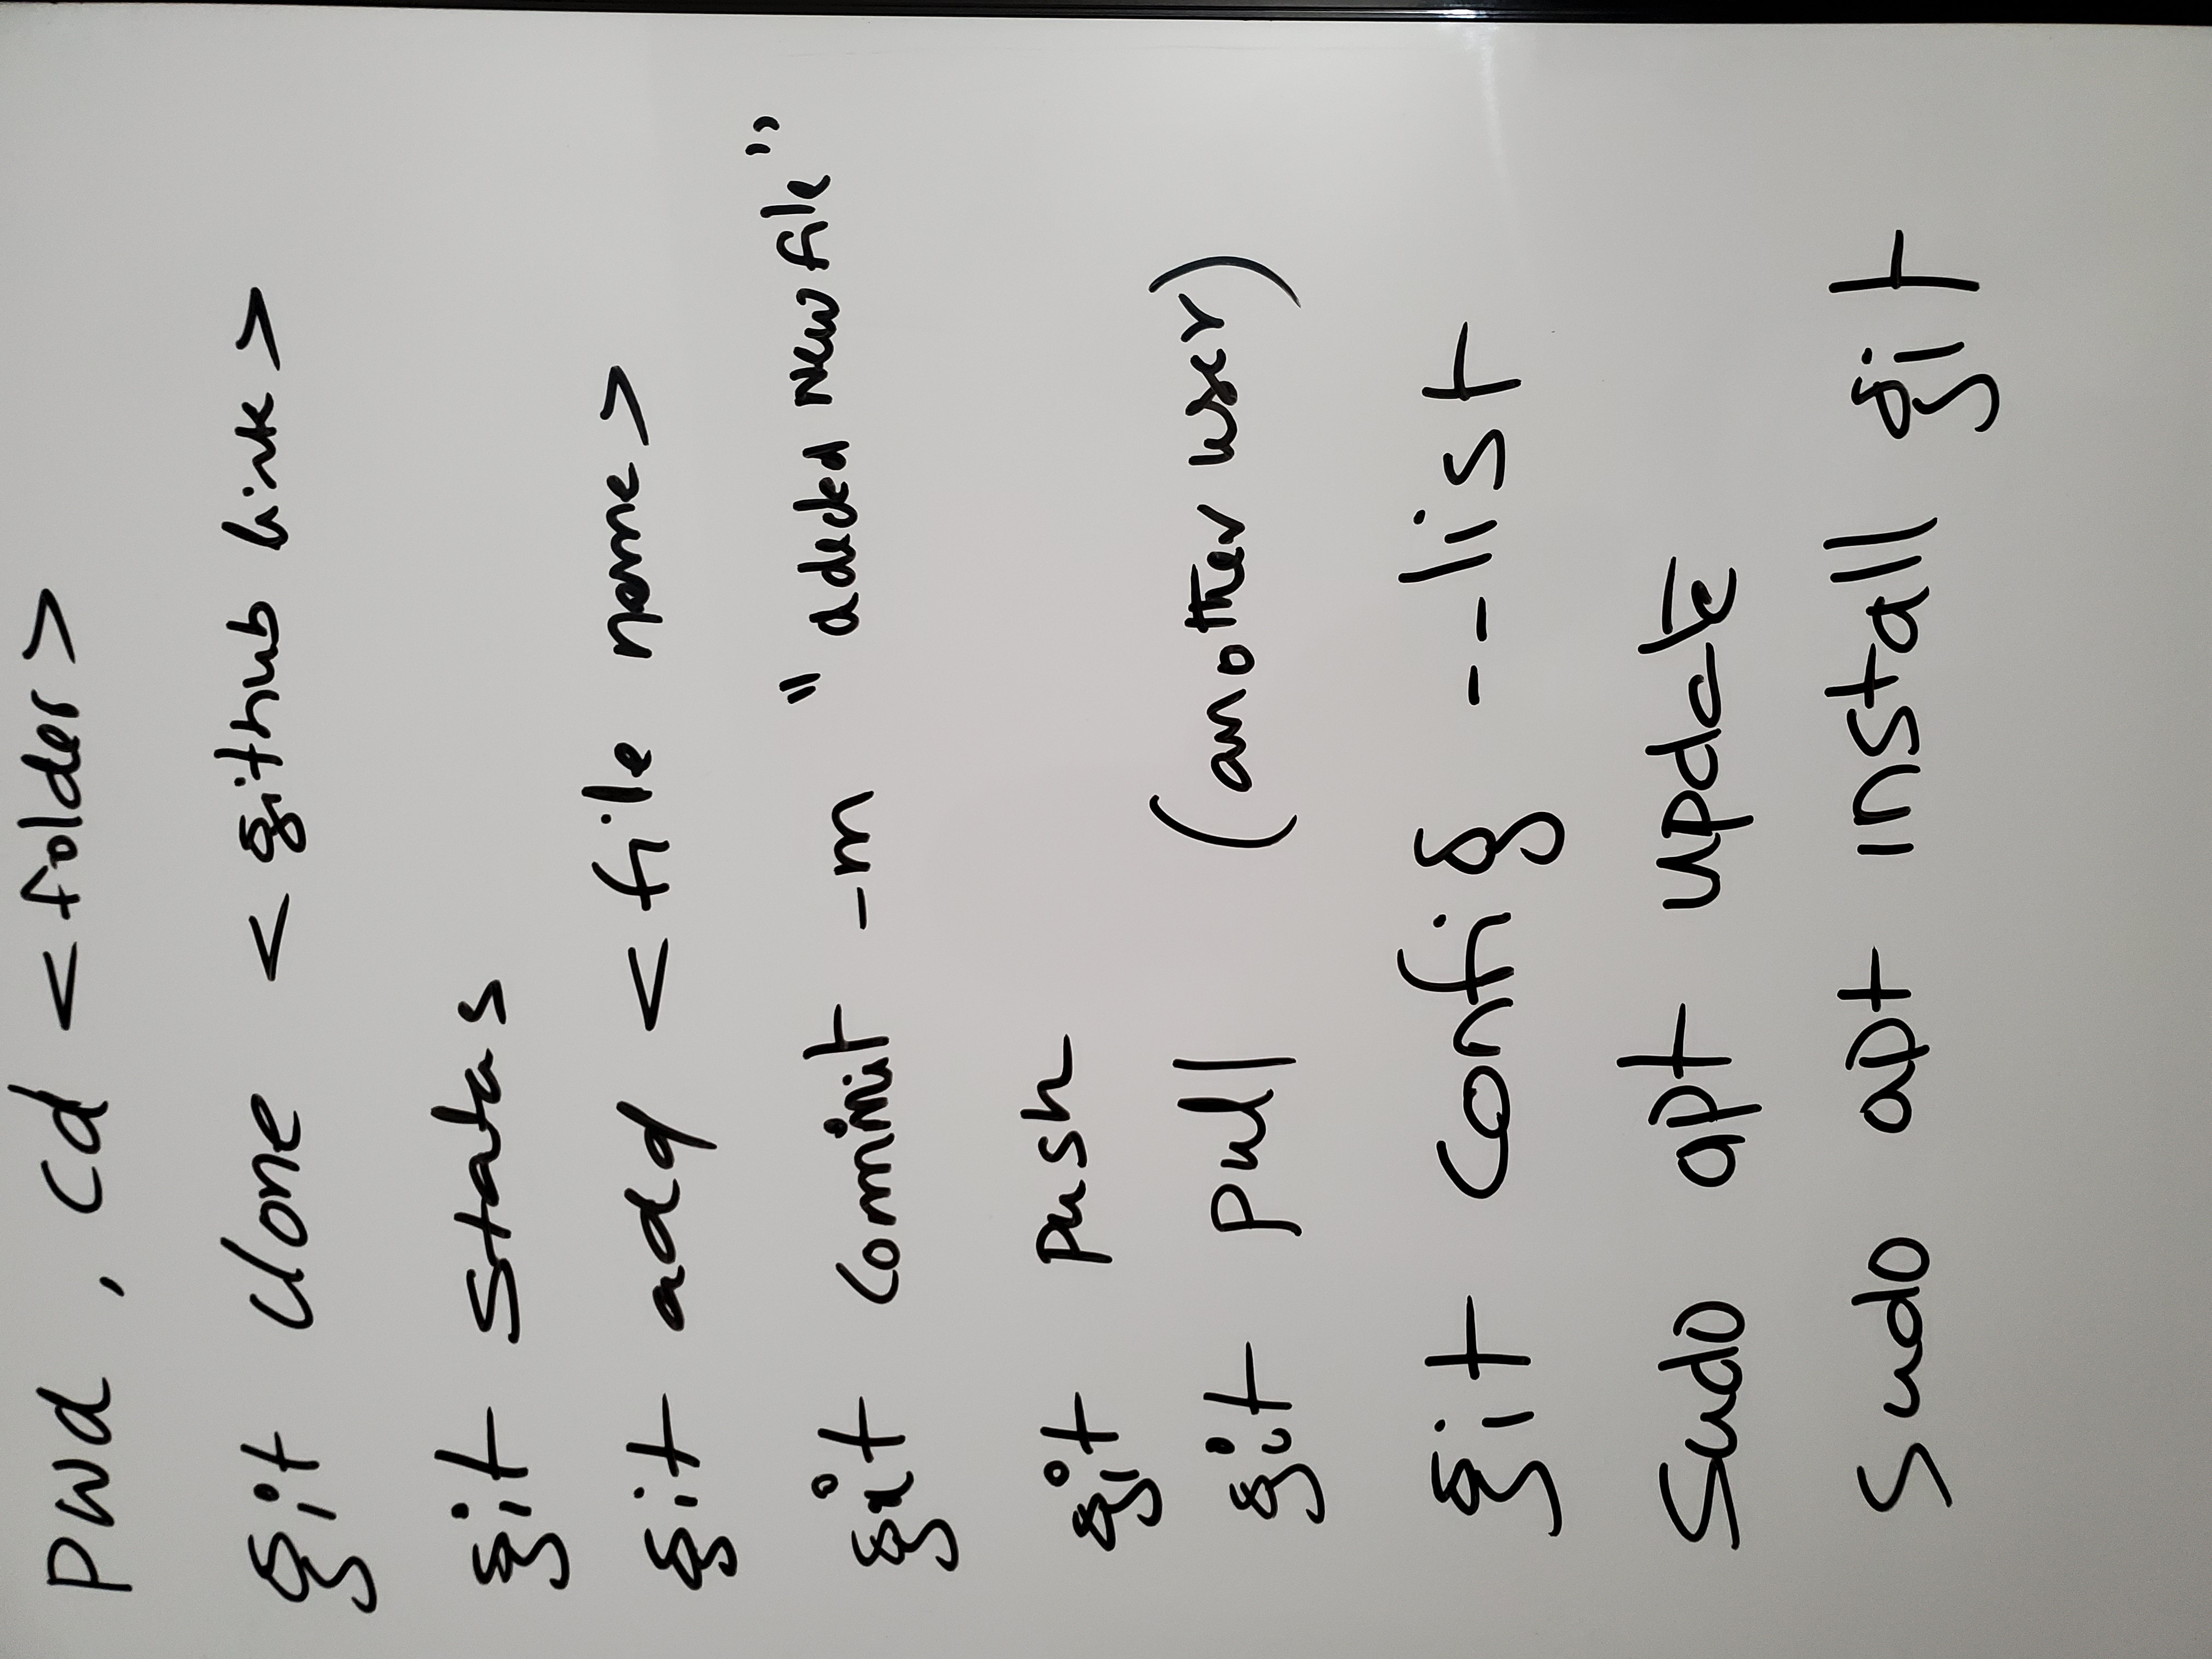 pwd , cd <folder>
git clone <github link>
git status
git add <file name>
git commit -m "added New file"
git push
git pull (another user)
git config --list
sudo apt update
sudo apt install git